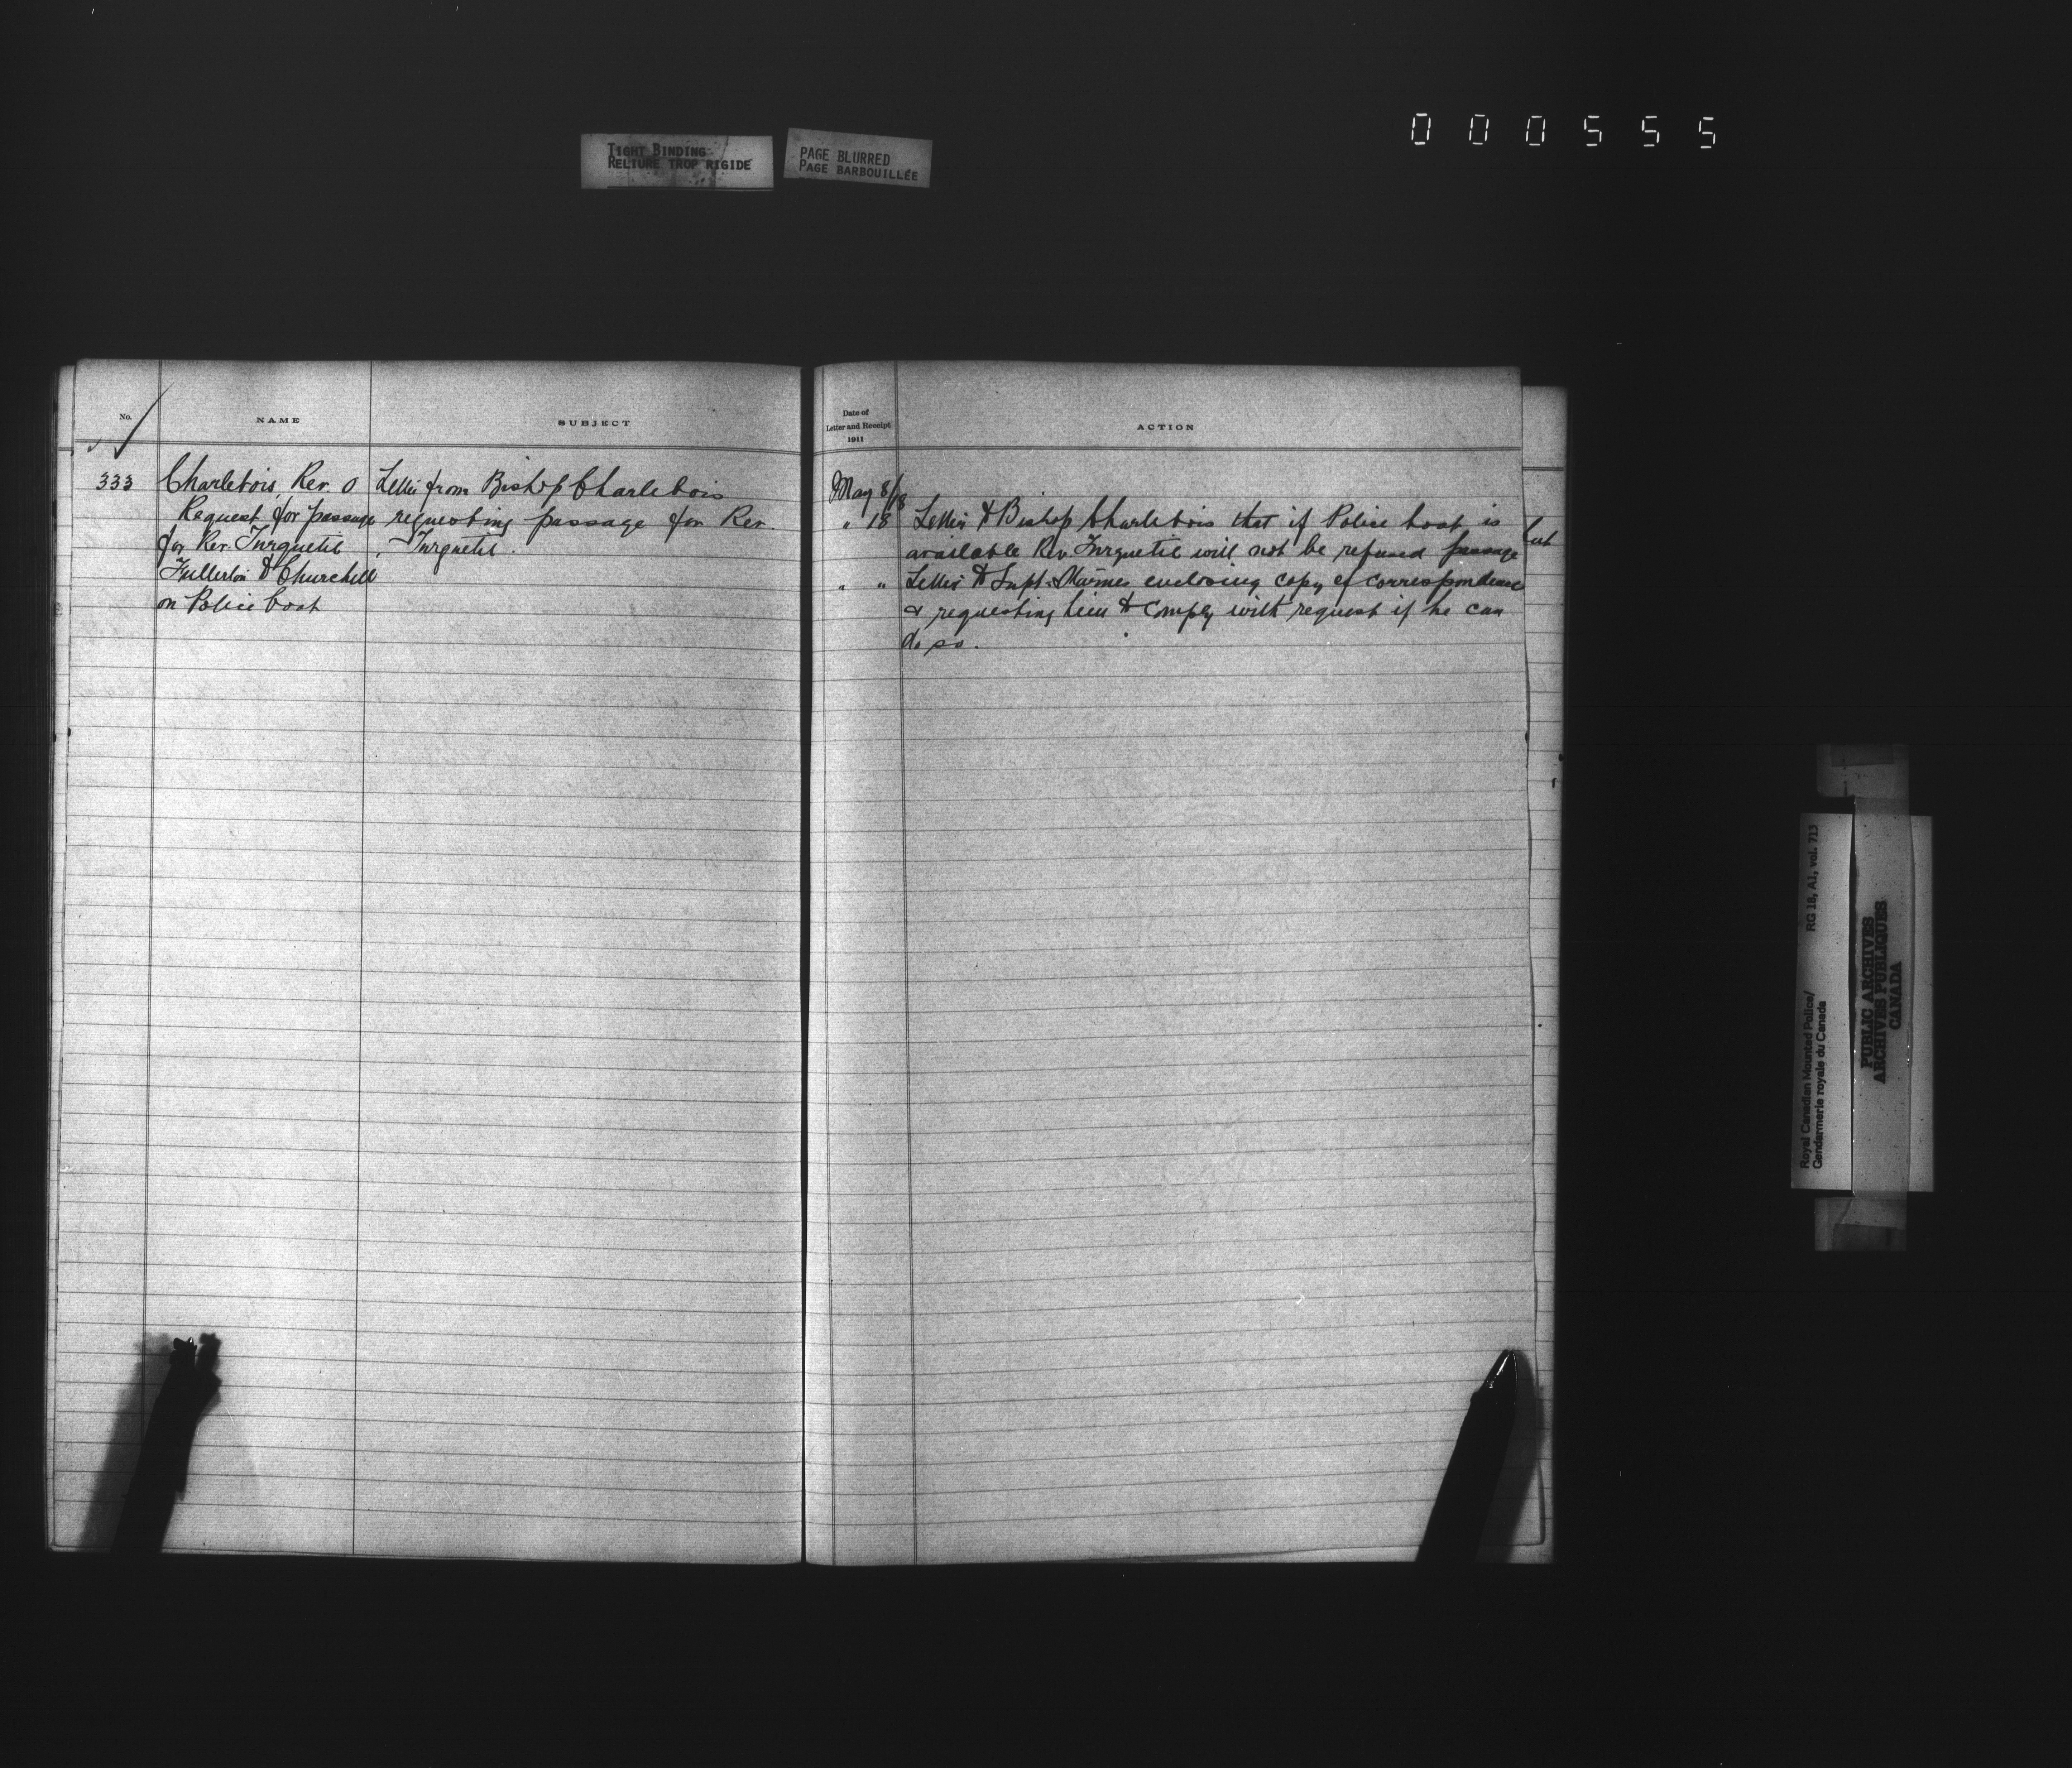 000555
TIGHT BINDING
RELIURE TROP RIGIDE
PAGE BLURRED
PAGE BARBOUILLÉE
No.
NAME
SUBJECT
333
Charlebois, Rev. O
Request for passage
for Rev. Turquetil
Fullerton to Churchill
on Police boat
Letter from Bishop Charlebois
requesting passage for Rev.
Turquetil.
Date of
Letter and Receipt
1911
ACTION
May 8/18
" 18 Letter to Bishop Charlebois that if Police boat is
available Rev. Turquetil will not be refused passage
" " Letter to Supt. enclosing copy of correspondence
& requesting him to comply with request if he can
do so.
Royal Canadian Mounted Police/
Gendarmerie royale du Canada
RG 18, A1, vol. 713
PUBLIC ARCHIVES
ARCHIVES PUBLIQUES
CANADA